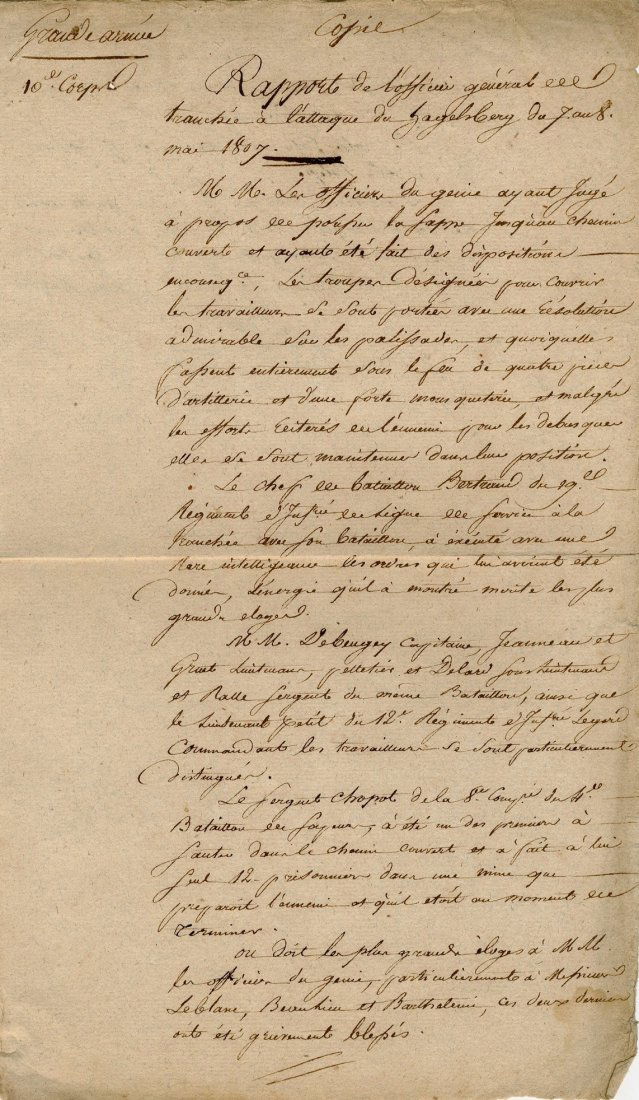 Grande armée
Copie
10e. Corps
Rapport de l'officier général de
tranchée à l'attaque du hagelsberg du 7. au 8.
mai 1807.
M M. Les officiers du genie ayant Jugé
à propos de pousser la sappe Jusqu'au chemin
couvert et ayant été fait des dispositions
en conseqce, Les troupes désignées pour couvrir
les travailleurs se sont portées avec une résolution
admirable sur les palissades, et quoiquelles
fussent entierement sous le feu de quatre pieces
d'artillerie et d'une forte mousqueterie, et malgré
les efforts réiterés de l'ennemi pour les debusquer
elles se sont maintenues dans leur position.
Le chef de bataillon Bertrand du 19e.
Régiment d'Infrie de Ligne de service à la
tranchée avec son bataillon, à éxécuté avec une
rare intelligence les ordres qui lui avoient été
donnés, L'énergie qu'il à montré merite les plus
grands eloges.
M. M. Debeugey Capitaine, Jeanneau et
Gruet Lieutenans, pelletier et Delard sous Lieutenans
et Ralle sergent du même Bataillon, ainsi que
le Lieutenant petit du 12e. Régiment d'Infrie Legere
Commandant les travailleurs se sont particulierement
distingués.
Le sergent Chopot de la 8e. Compie du 4e.
Bataillon de sapeurs, à été un des premiers à
sauter dans le chemin couvert et à fait à lui
seul 12. prisonniers dans une mine que
préparoit l'ennemi et qu'il etoit au moment de
terminer.
on doit les plus grands éloges à M M.
les officiers du genie, particulierement à Messieurs
Leblanc, Beaulieu et Barthelemi, ces deux derniers
ont été grievement blessés.